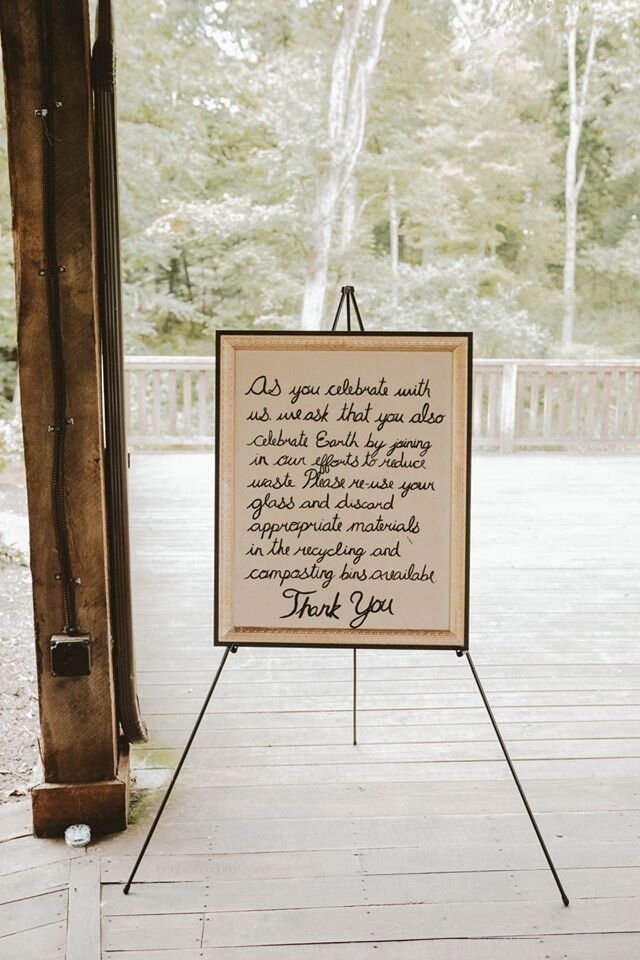 As you celebrate with
us, we ask that you also
celebrate Earth by joining
in our efforts to reduce
waste. Please re-use your
glass and discard
appropriate materials
in the recycling and
composting bins available.
Thank You